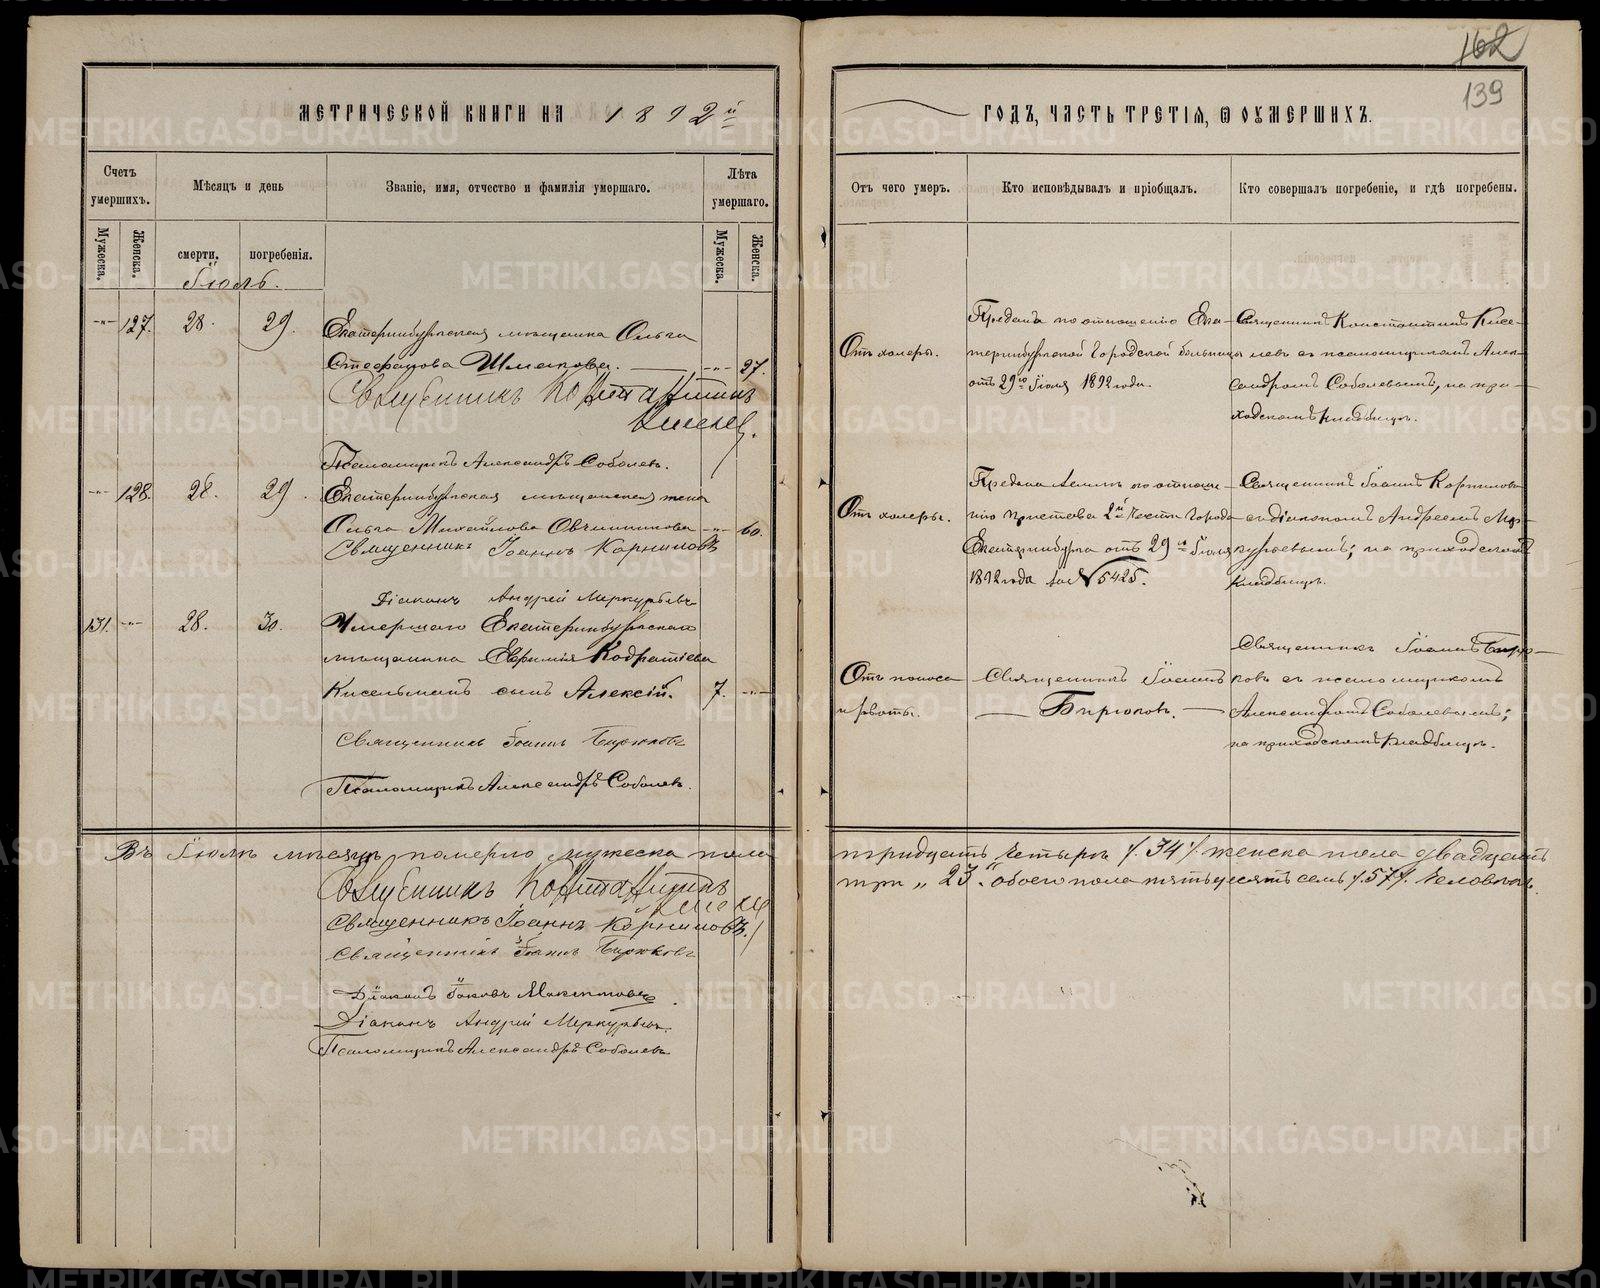 162
139
МЕТРИЧЕСКОЙ КНИГИ НА 1892й
ГОДЪ, ЧАСТЬ ТРЕТІЯ, Ѿ ОУМЕРШИХЪ.
Счетъ умершихъ.
Мѣсяцъ и день
Званіе, имя, отчество и фамилія умершаго.
Лѣта умершаго.
Отъ чего умеръ.
Кто исповѣдывалъ и пріобщалъ.
Кто совершалъ погребеніе, и гдѣ погребены.
Мужеска.
Женска.
смерти.
погребенія.
Мужеска.
Женска.
Іюль.
-"- 127. 28. 29.
Екатеринбургская мѣщанка Ольга
Стефанова Шмакова. -"- 27.
Священникъ Константинъ
Киселевъ.
Псаломщикъ Александръ Соболевъ.
Отъ холеры.
Преданъ по отношенію Ека-
теринбургской Городской больницы
отъ 29го Іюля 1892 года.
Священникъ Константинъ Кисе-
левъ съ псаломщикомъ Алек-
сандромъ Соболевымъ, на при-
ходскомъ кладбищѣ.
-"- 128. 28. 29.
Екатеринбургская мѣщанская жена
Ольга Михайлова Овчинникова -"- 60.
Священникъ Іоаннъ Корниловъ
Діаконъ Андрей Меркурьевъ
Отъ холеры.
Предана землѣ по отноше-
нію Пристава 2й Части Города
Екатеринбурга отъ 29го Іюля
1892 года за № 5425.
Священникъ Іоаннъ Корниловъ
съ діакономъ Андреемъ Мер-
курьевымъ; на приходскомъ
кладбищѣ.
131. -"- 28. 30.
Умершаго Екатеринбургскаго
мѣщанина Евфимія Кодратіева
Кисельманъ сынъ Алексій. 7. -"-
Священникъ Іоаннъ Бирюковъ
Псаломщикъ Александръ Соболевъ.
Отъ поноса
и рвоты.
Священникъ Іоаннъ
Бирюковъ.
Священникъ Іоаннъ Бирю-
ковъ съ псаломщикомъ
Александромъ Соболевымъ;
на приходскомъ кладбищѣ.
Въ Іюлѣ мѣсяцѣ померло мужеска пола
тридцать четыре /.34/. женска пола двадцать
три „ 23. обоего пола пятьдесятъ семь /.57/. человѣкъ.
Священникъ Константинъ
Киселевъ
Священникъ Іоаннъ Корниловъ.
Священникъ Іоаннъ Бирюковъ
Діаконъ Іаковъ Максимовъ.
Діаконъ Андрей Меркурьевъ.
Псаломщикъ Александръ Соболевъ
METRIKI.GASO-URAL.RU